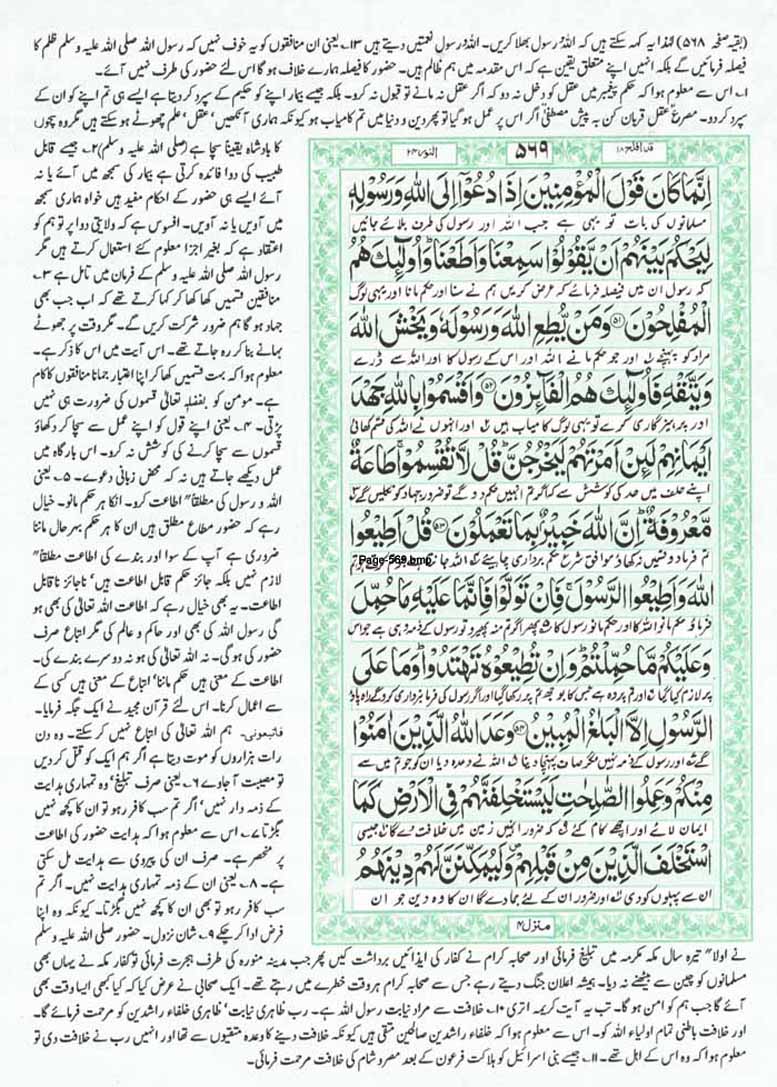 (بقیہ صفحہ ۵۶۸) لہٰذا یہ کہہ سکتے ہیں کہ اللہ و رسول بھلا کریں۔ اللہ و رسول نعمتیں دیتے ہیں ۱۳۔ یعنی ان منافقوں کو یہ خوف نہیں کہ رسول اللہ صلی اللہ علیہ وسلم ظلم کا
فیصلہ فرمائیں گے بلکہ انہیں اپنے متعلق یقین ہے کہ اس مقدمہ میں ہم ظالم ہیں۔ حضور کا فیصلہ ہمارے خلاف ہو گا اس لئے حضور کی طرف نہیں آئے۔
۱۔ اس سے معلوم ہوا کہ حکم پیغمبر میں عقل کو دخل نہ دو کہ اگر عقل نہ مانے تو قبول نہ کرو۔ بلکہ جیسے بیمار اپنے کو حکیم کے سپرد کر دیتا ہے ایسے ہی تم اپنے کو ان کے
سپرد کر دو۔ مصرع عقل قربان کن بہ پیش مصطفیٰ اگر اس پر عمل ہو گیا تو پھر دین و دنیا میں تم کامیاب ہو کیونکہ ہماری آنکھیں' عقل' علم جھوٹے ہو سکتے ہیں مگر وہ سچوں
قد افلح ۱۸
۵۶۹
النور ۲۴
اِنَّمَا كَانَ قَوْلَ الْمُؤْمِنِيْنَ اِذَا دُعُوْٓا اِلَى اللّٰهِ وَرَسُوْلِهٖ
مسلمانوں کی بات تو یہی ہے جب اللہ اور رسول کی طرف بلائے جائیں
لِيَحْكُمَ بَيْنَهُمْ اَنْ يَّقُوْلُوْا سَمِعْنَا وَاَطَعْنَا ؕ وَاُولٰٓئِكَ هُمُ
کہ رسول ان میں فیصلہ فرمائے کہ عرض کریں ہم نے سنا اور حکم مانا اور یہی لوگ
الْمُفْلِحُوْنَ ۵۱ وَمَنْ يُّطِعِ اللّٰهَ وَرَسُوْلَهٗ وَيَخْشَ اللّٰهَ
مراد کو پہنچے اور جو حکم مانے اللہ اور اس کے رسول کا اور اللہ سے ڈرے
وَيَتَّقْهِ فَاُولٰٓئِكَ هُمُ الْفَآئِزُوْنَ ۵۲ وَاَقْسَمُوْا بِاللّٰهِ جَهْدَ
اور پرہیزگاری کرے تو یہی لوگ کامیاب ہیں اور انہوں نے اللہ کی قسم کھائی
اَيْمَانِهِمْ لَئِنْ اَمَرْتَهُمْ لَيَخْرُجُنَّ ؕ قُلْ لَّا تُقْسِمُوْا ۚ طَاعَةٌ
اپنے حلف میں حد کی کوشش سے کہ اگر تم انہیں حکم دو گے تو ضرور جہاد کو نکلیں گے
مَّعْرُوْفَةٌ ؕ اِنَّ اللّٰهَ خَبِيْرٌۢ بِمَا تَعْمَلُوْنَ ۵۳ قُلْ اَطِيْعُوا
تم فرما دو قسمیں نہ کھاؤ موافق شرع حکم برداری چاہیئے اللہ جانتا
Page-569.bmp
اللّٰهَ وَاَطِيْعُوا الرَّسُوْلَ ۚ فَاِنْ تَوَلَّوْا فَاِنَّمَا عَلَيْهِ مَا حُمِّلَ
فرماؤ حکم مانو اللہ کا اور حکم مانو رسول کا پھر اگر تم منہ پھیرو تو رسول کے ذمہ وہی ہے جو اس
وَعَلَيْكُمْ مَّا حُمِّلْتُمْ ؕ وَاِنْ تُطِيْعُوْهُ تَهْتَدُوْا ؕ وَمَا عَلَى
پر لازم کیا گیا اور تم پر وہ ہے جس کا بوجھ تم پر رکھا گیا اور اگر رسول کی فرمانبرداری کرو گے راہ پاؤ
الرَّسُوْلِ اِلَّا الْبَلٰغُ الْمُبِيْنُ ۵۴ وَعَدَ اللّٰهُ الَّذِيْنَ اٰمَنُوْا
گے اور رسول کے ذمہ نہیں مگر صاف پہنچا دینا اللہ نے وعدہ دیا ان کو جو تم میں سے
مِنْكُمْ وَعَمِلُوا الصّٰلِحٰتِ لَيَسْتَخْلِفَنَّهُمْ فِى الْاَرْضِ كَمَا
ایمان لائے اور اچھے کام کئے کہ ضرور انہیں زمین میں خلافت دے گا جیسی
اسْتَخْلَفَ الَّذِيْنَ مِنْ قَبْلِهِمْ ۪ وَلَيُمَكِّنَنَّ لَهُمْ دِيْنَهُمُ
ان سے پہلوں کو دی اور ضرور ان کے لئے جما دے گا ان کا وہ دین جو ان
منزل ۴
کا بادشاہ یقیناً سچا ہے (صلی اللہ علیہ وسلم) ۲۔ جیسے قابل
طبیب کی دوا فائدہ کرتی ہے بیمار کی سمجھ میں آئے یا نہ
آئے ایسے ہی حضور کے احکام مفید ہیں خواہ ہماری سمجھ
میں آویں یا نہ آویں۔ افسوس ہے کہ ولایتی دوا پر تو ہم کو
اعتقاد ہے کہ بغیر اجزا معلوم کئے استعمال کرتے ہیں مگر
رسول اللہ صلی اللہ علیہ وسلم کے فرمان میں تامل ہے ۳۔
منافقین قسمیں کھا کھا کر کہا کرتے تھے کہ اب جب بھی
جہاد ہو گا ہم ضرور شرکت کریں گے۔ مگر وقت پر جھوٹے
بہانے بنا کر رہ جاتے تھے۔ اس آیت میں اس کا ذکر ہے۔
معلوم ہوا کہ بہت قسمیں کھا کر اپنا اعتبار جمانا منافقوں کا کام
ہے۔ مومن کو بفضلہٖ تعالیٰ قسموں کی ضرورت ہی نہیں
پڑتی۔ ۴۔ یعنی اپنے قول کو اپنے عمل سے سچا کر دکھاؤ
قسموں سے سچا کرنے کی کوشش نہ کرو۔ اس بارگاہ میں
عمل دیکھے جاتے ہیں نہ کہ محض زبانی دعوے۔ ۵۔ یعنی
اللہ و رسول کی مطلقاً اطاعت کرو۔ انکا ہر حکم مانو۔ خیال
رہے کہ حضور مطاع مطلق ہیں ان کا ہر حکم بہر حال ماننا
ضروری ہے آپ کے سوا اور بندے کی اطاعت مطلقاً
لازم نہیں بلکہ جائز حکم قابل اطاعت ہیں' ناجائز ناقابل
اطاعت۔ یہ بھی خیال رہے کہ اطاعت اللہ تعالیٰ کی بھی ہو
گی رسول اللہ کی بھی اور حاکم و عالم کی مگر اتباع صرف
حضور کی ہو گی۔ نہ اللہ تعالیٰ کی ہو نہ دوسرے بندے کی۔
اطاعت کے معنی ہیں حکم ماننا' اتباع کے معنی ہیں کسی کے
سے اعمال کرنا۔ اس لئے قرآن مجید نے ایک جگہ فرمایا۔
فاتبعونی۔ ہم اللہ تعالیٰ کی اتباع نہیں کر سکتے۔ وہ دن
رات ہزاروں کو موت دیتا ہے اگر ہم ایک کو قتل کر دیں
تو مصیبت آ جاوے ۶۔ یعنی صرف تبلیغ' وہ تمہاری ہدایت
کے ذمہ دار نہیں' اگر تم سب کافر رہو تو ان کا کچھ نہیں
بگڑتا ۷۔ اس سے معلوم ہوا کہ ہدایت حضور کی اطاعت
پر منحصر ہے۔ صرف ان کی پیروی سے ہدایت مل سکتی
ہے۔ ۸۔ یعنی ان کے ذمہ تمہاری ہدایت نہیں۔ اگر تم
سب کافر رہو تو بھی ان کا کچھ نہیں بگڑتا۔ کیونکہ وہ اپنا
فرض ادا کر چکے ۹۔ شان نزول۔ حضور صلی اللہ علیہ وسلم
نے اولاً تیرہ سال مکہ مکرمہ میں تبلیغ فرمائی اور صحابہ کرام نے کفار کی ایذائیں برداشت کیں پھر جب مدینہ منورہ کی طرف ہجرت فرمائی تو کفار مکہ نے یہاں بھی
مسلمانوں کو چین سے بیٹھنے نہ دیا۔ ہمیشہ اعلان جنگ دیتے رہے جس سے صحابہ کرام ہر وقت خطرے میں رہتے تھے۔ ایک صحابی نے عرض کیا کہ کیا کبھی ایسا وقت بھی
آئے گا جب ہم کو امن ہو گا۔ تب یہ آیت کریمہ اتری ۱۰۔ خلافت سے مراد نیابت رسول اللہ ہے۔ رب ظاہری نیابت' ظاہری خلفاء راشدین کو مرحمت فرمائے گا۔
اور خلافت باطنی تمام اولیاء اللہ کو۔ اس سے معلوم ہوا کہ خلفاء راشدین صالحین متقی ہیں کیونکہ خلافت دینے کا وعدہ متقیوں سے تھا اور انہیں رب نے خلافت دی تو
معلوم ہوا کہ وہ اس کے اہل تھے۔ ۱۱۔ جیسے بنی اسرائیل کو ہلاکت فرعون کے بعد مصر و شام کی خلافت مرحمت فرمائی۔